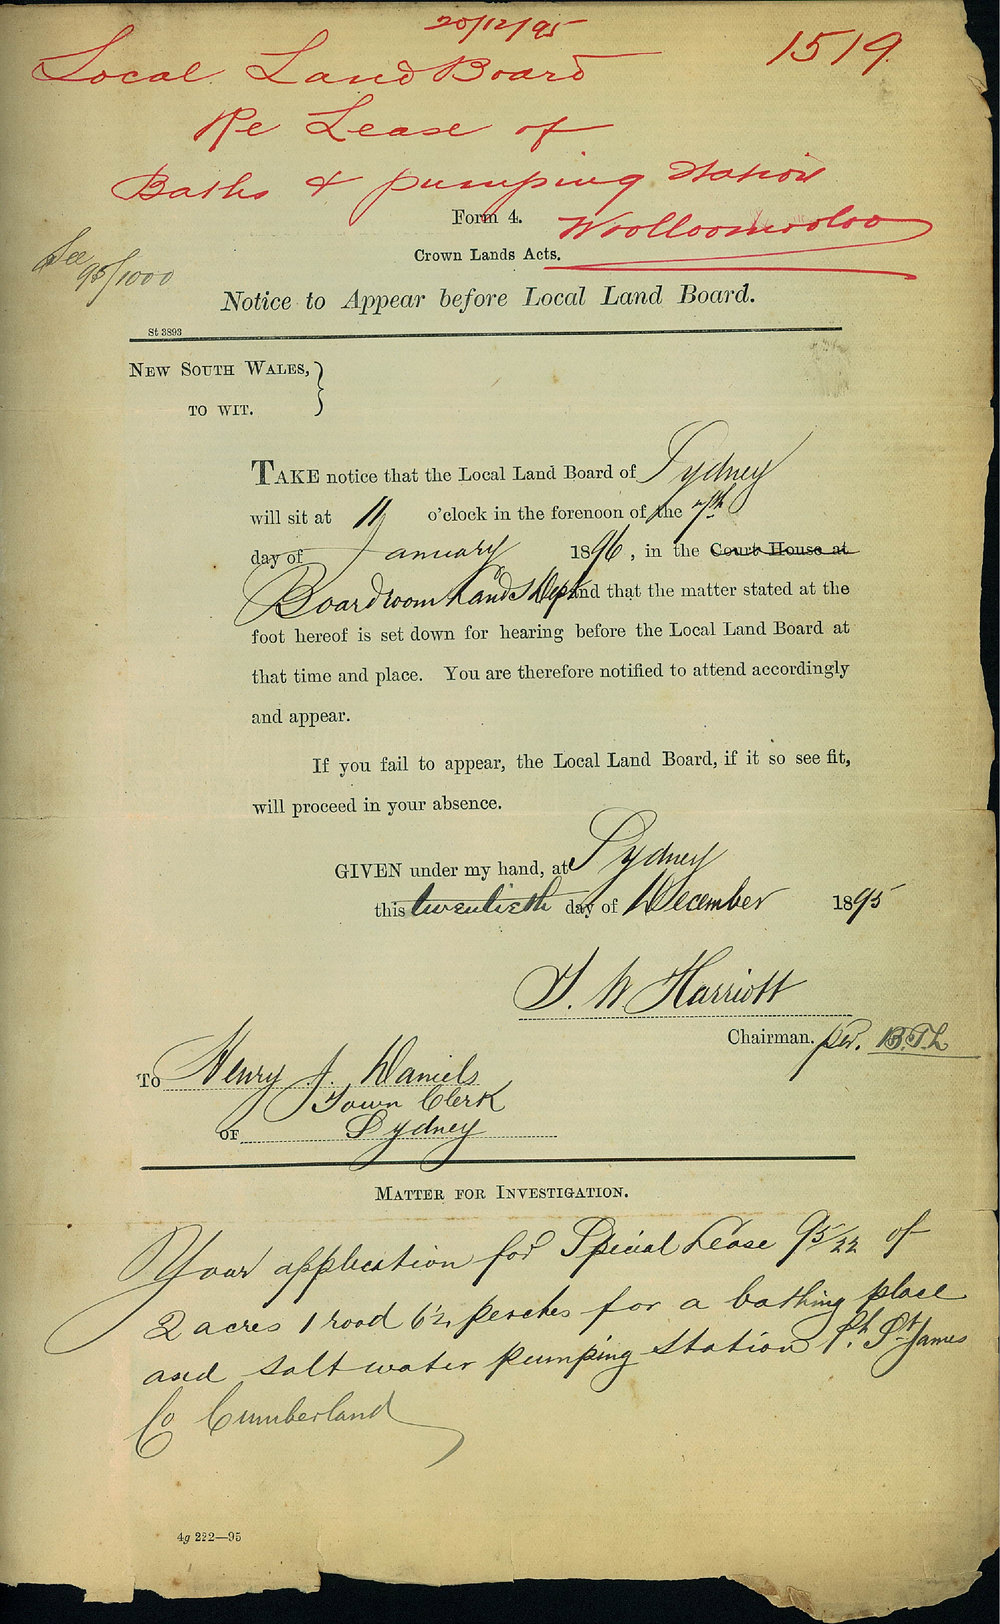 20/12/95
1519
Local Land Board
Re Lease of
Baths & pumping station
Woolloomooloo
See 95/1000
Form 4.
Crown Lands Acts.
Notice to Appear before Local Land Board.
St 3893
NEW SOUTH WALES, }
TO WIT.
TAKE notice that the Local Land Board of Sydney
will sit at 11 o'clock in the forenoon of the 7th
day of January 1896, in the Court House at
Boardroom Lands Dept and that the matter stated at the
foot hereof is set down for hearing before the Local Land Board at
that time and place. You are therefore notified to attend accordingly
and appear.
If you fail to appear, the Local Land Board, if it so see fit,
will proceed in your absence.
GIVEN under my hand, at Sydney
this twentieth day of December 1895
T. W. Harriott
Chairman. per. B.T.L
To Henry J. Daniels
Town Clerk
OF Sydney
MATTER FOR INVESTIGATION.
Your application for Special Lease 95/22 of
2 acres 1 rood 6½ perches for a bathing place
and salt water pumping station Ph. St. James
Co Cumberland
4g 222—95